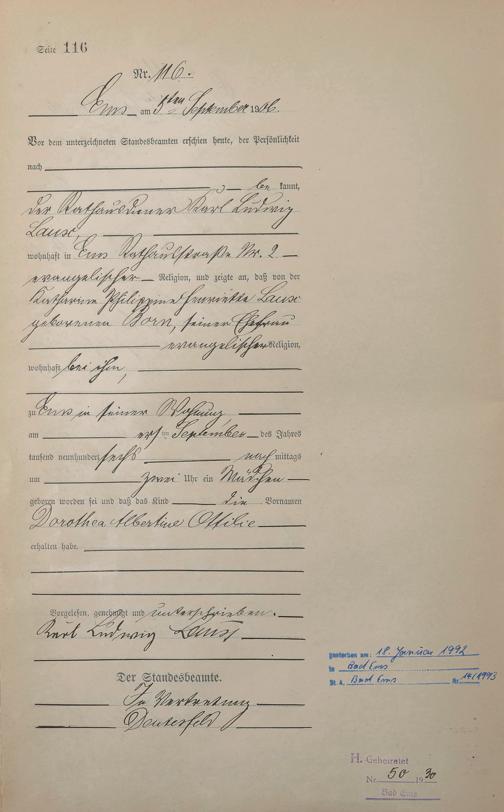 Seite 116
Nr. 116.
Ems am 5ten September 1906.
Vor dem unterzeichneten Standesbeamten erschien heute, der Persönlichkeit
nach
be kannt,
der Rathausdiener Karl Ludwig
wohnhaft in Ems Rathausstraße Nr. 2
evangelischer Religion, und zeigte an, daß von der
Katharine Philippine Henriette
geborenen Born, seiner Ehefrau
evangelischer Religion,
wohnhaft bei ihm,
zu Ems in seiner Wohnung
am ersten September des Jahres
tausend neunhundert sechs nach mittags
um zwei Uhr ein Mädchen
geboren worden sei und daß das Kind die Vornamen
Dorothea Albertine Ottilie
erhalten habe.
Vorgelesen, genehmigt und unterschrieben.
Karl Ludwig
Der Standesbeamte.
In Vertretung
gestorben am: 18. Januar 1992
in Bad Ems
St. A. Bad Ems Nr. 14/1993
H. Geheiratet
Nr. 50 1930
Bad Ems